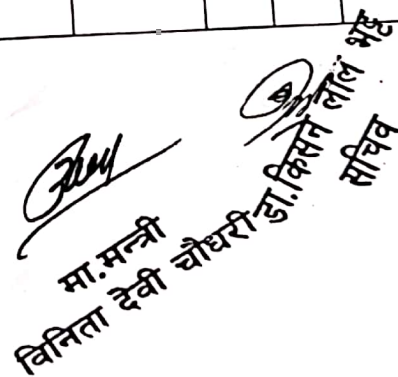 मा.मन्त्री
विनिता देवी चौधरी
डा.किसन लाल भट्ट
सचिव